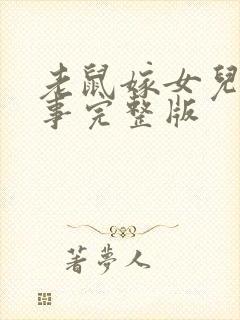 老鼠嫁女兒
事完整版
著夢人